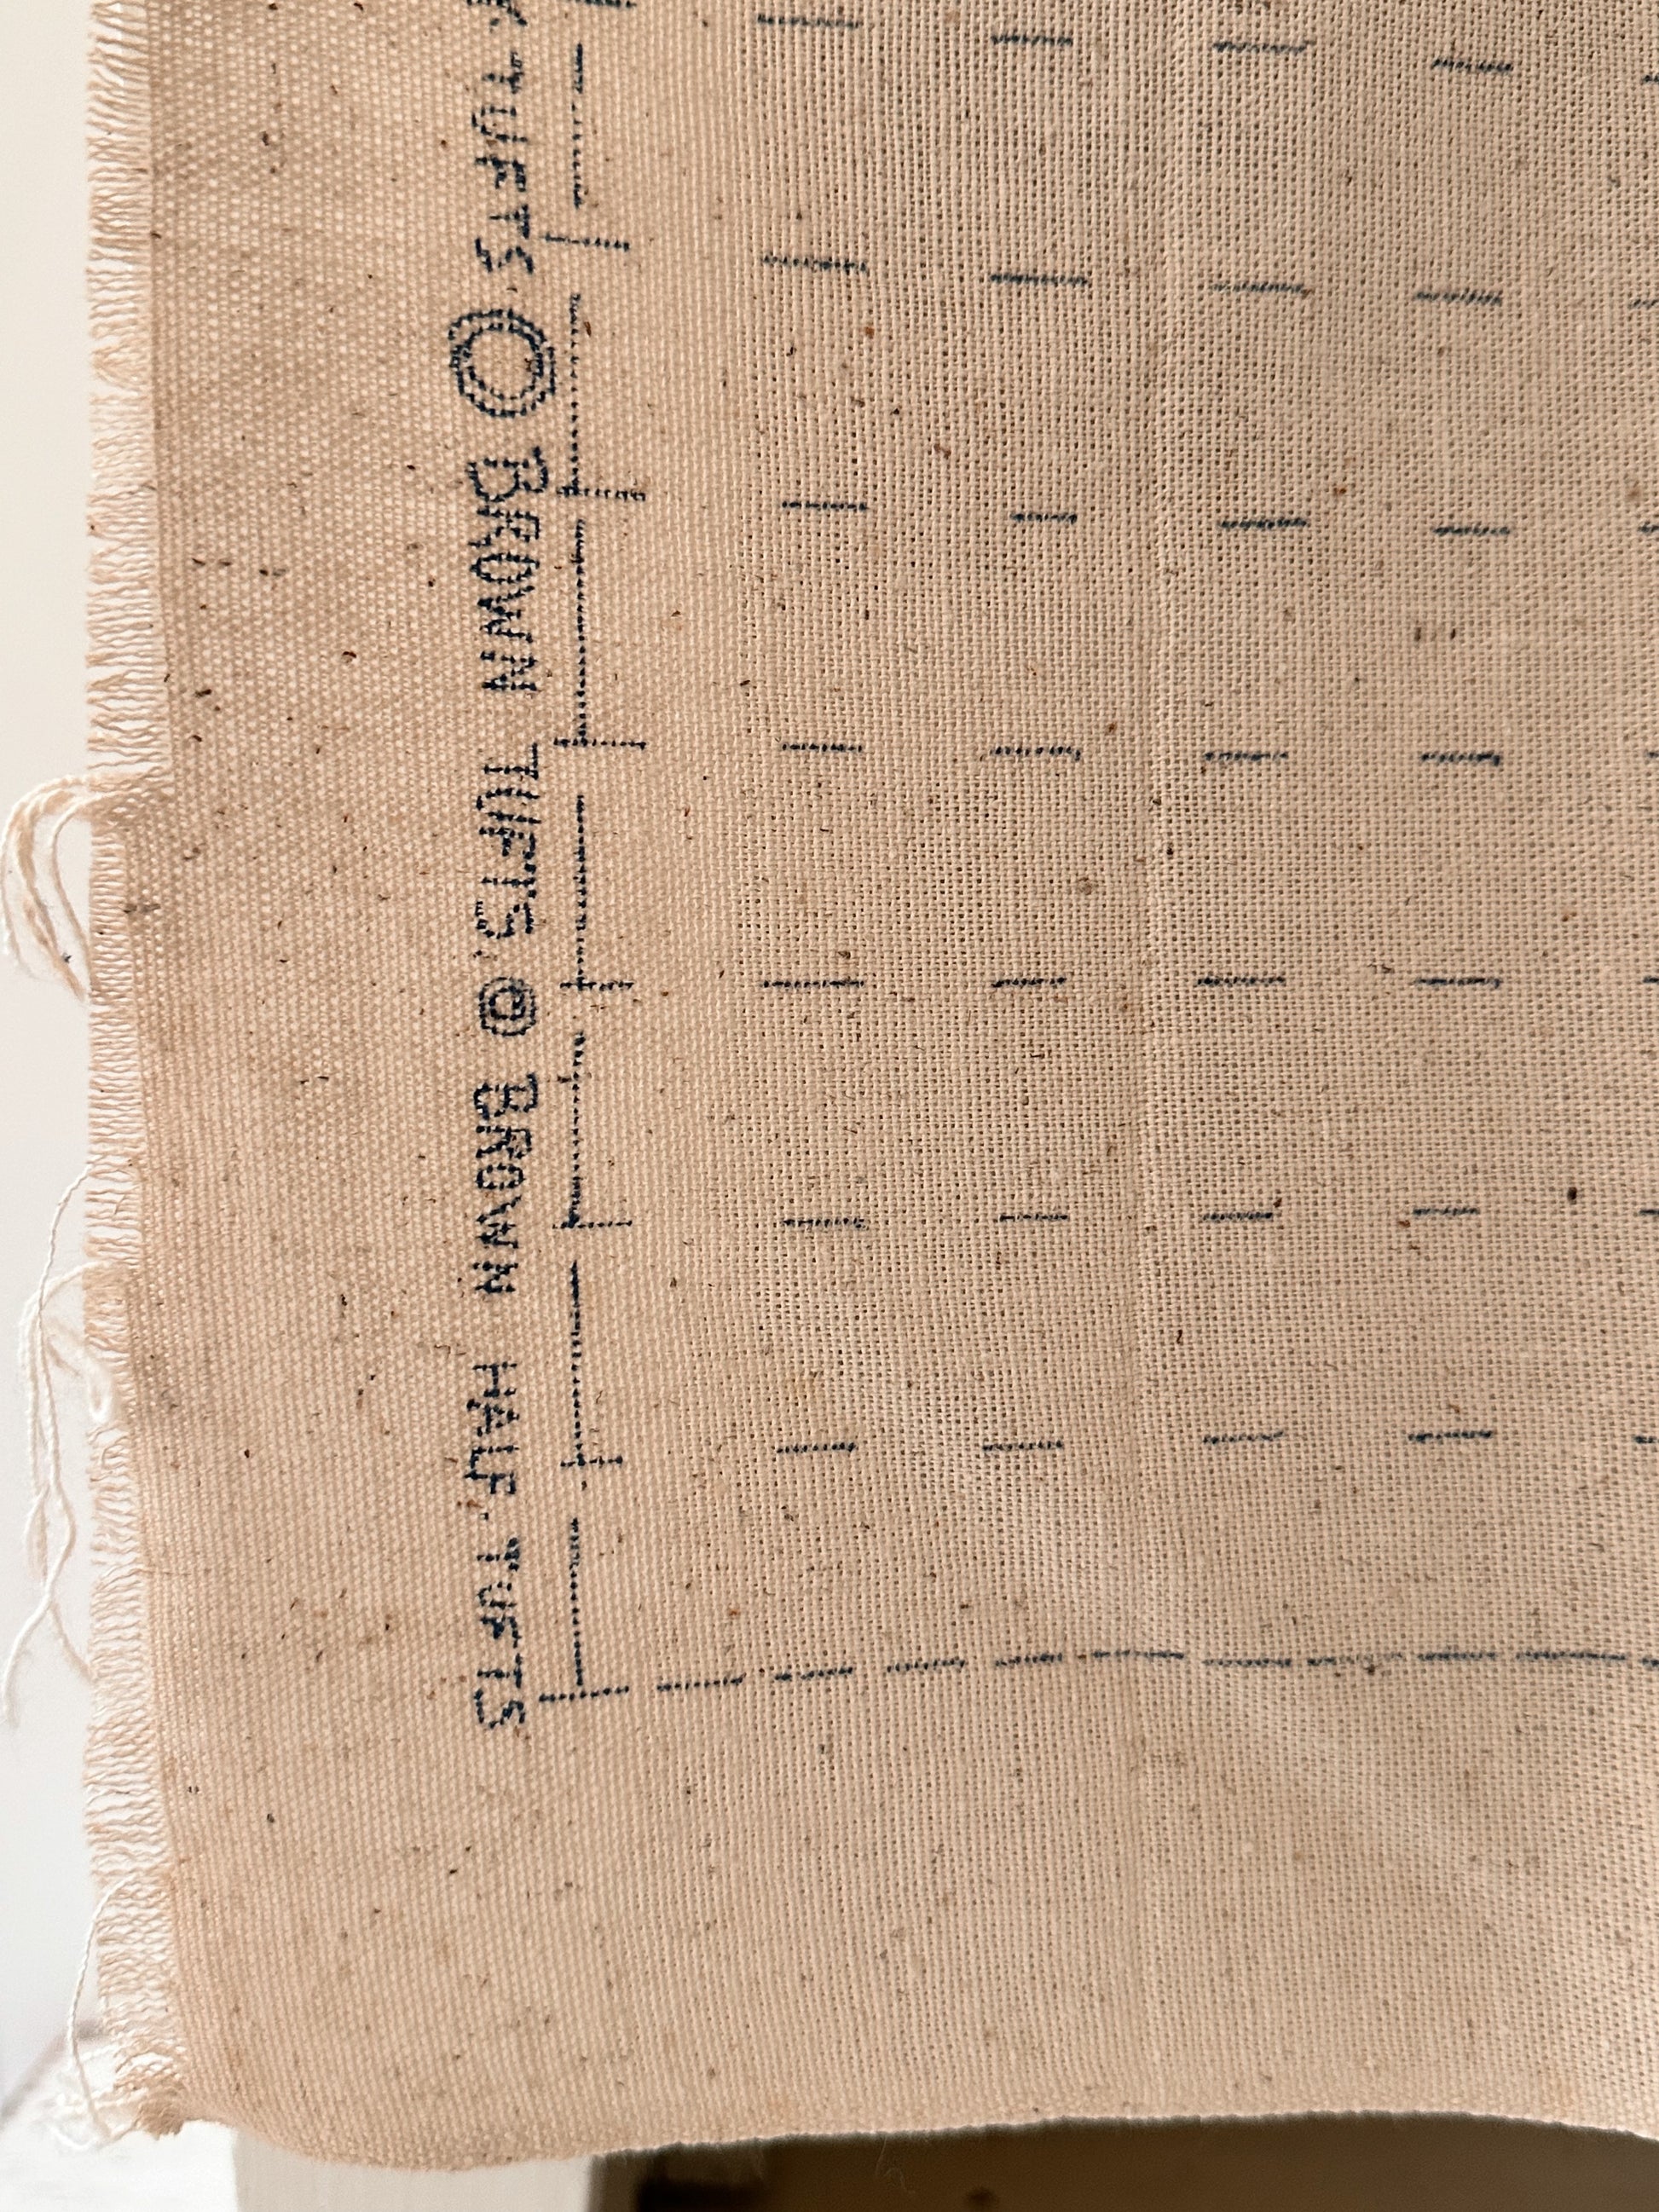 TUFTS BROWN TUFTS. BROWN HALF. TUFTS